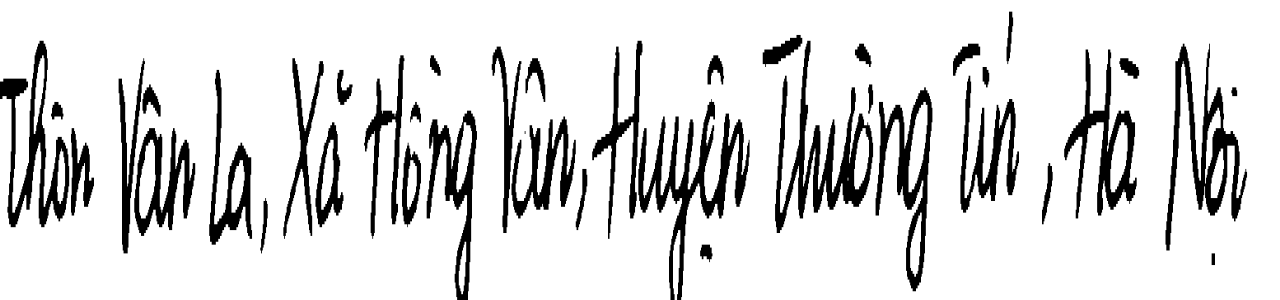 Thôn Vân La, Xã Hồng Vân, Huyện Thường Tín, Hà Nội